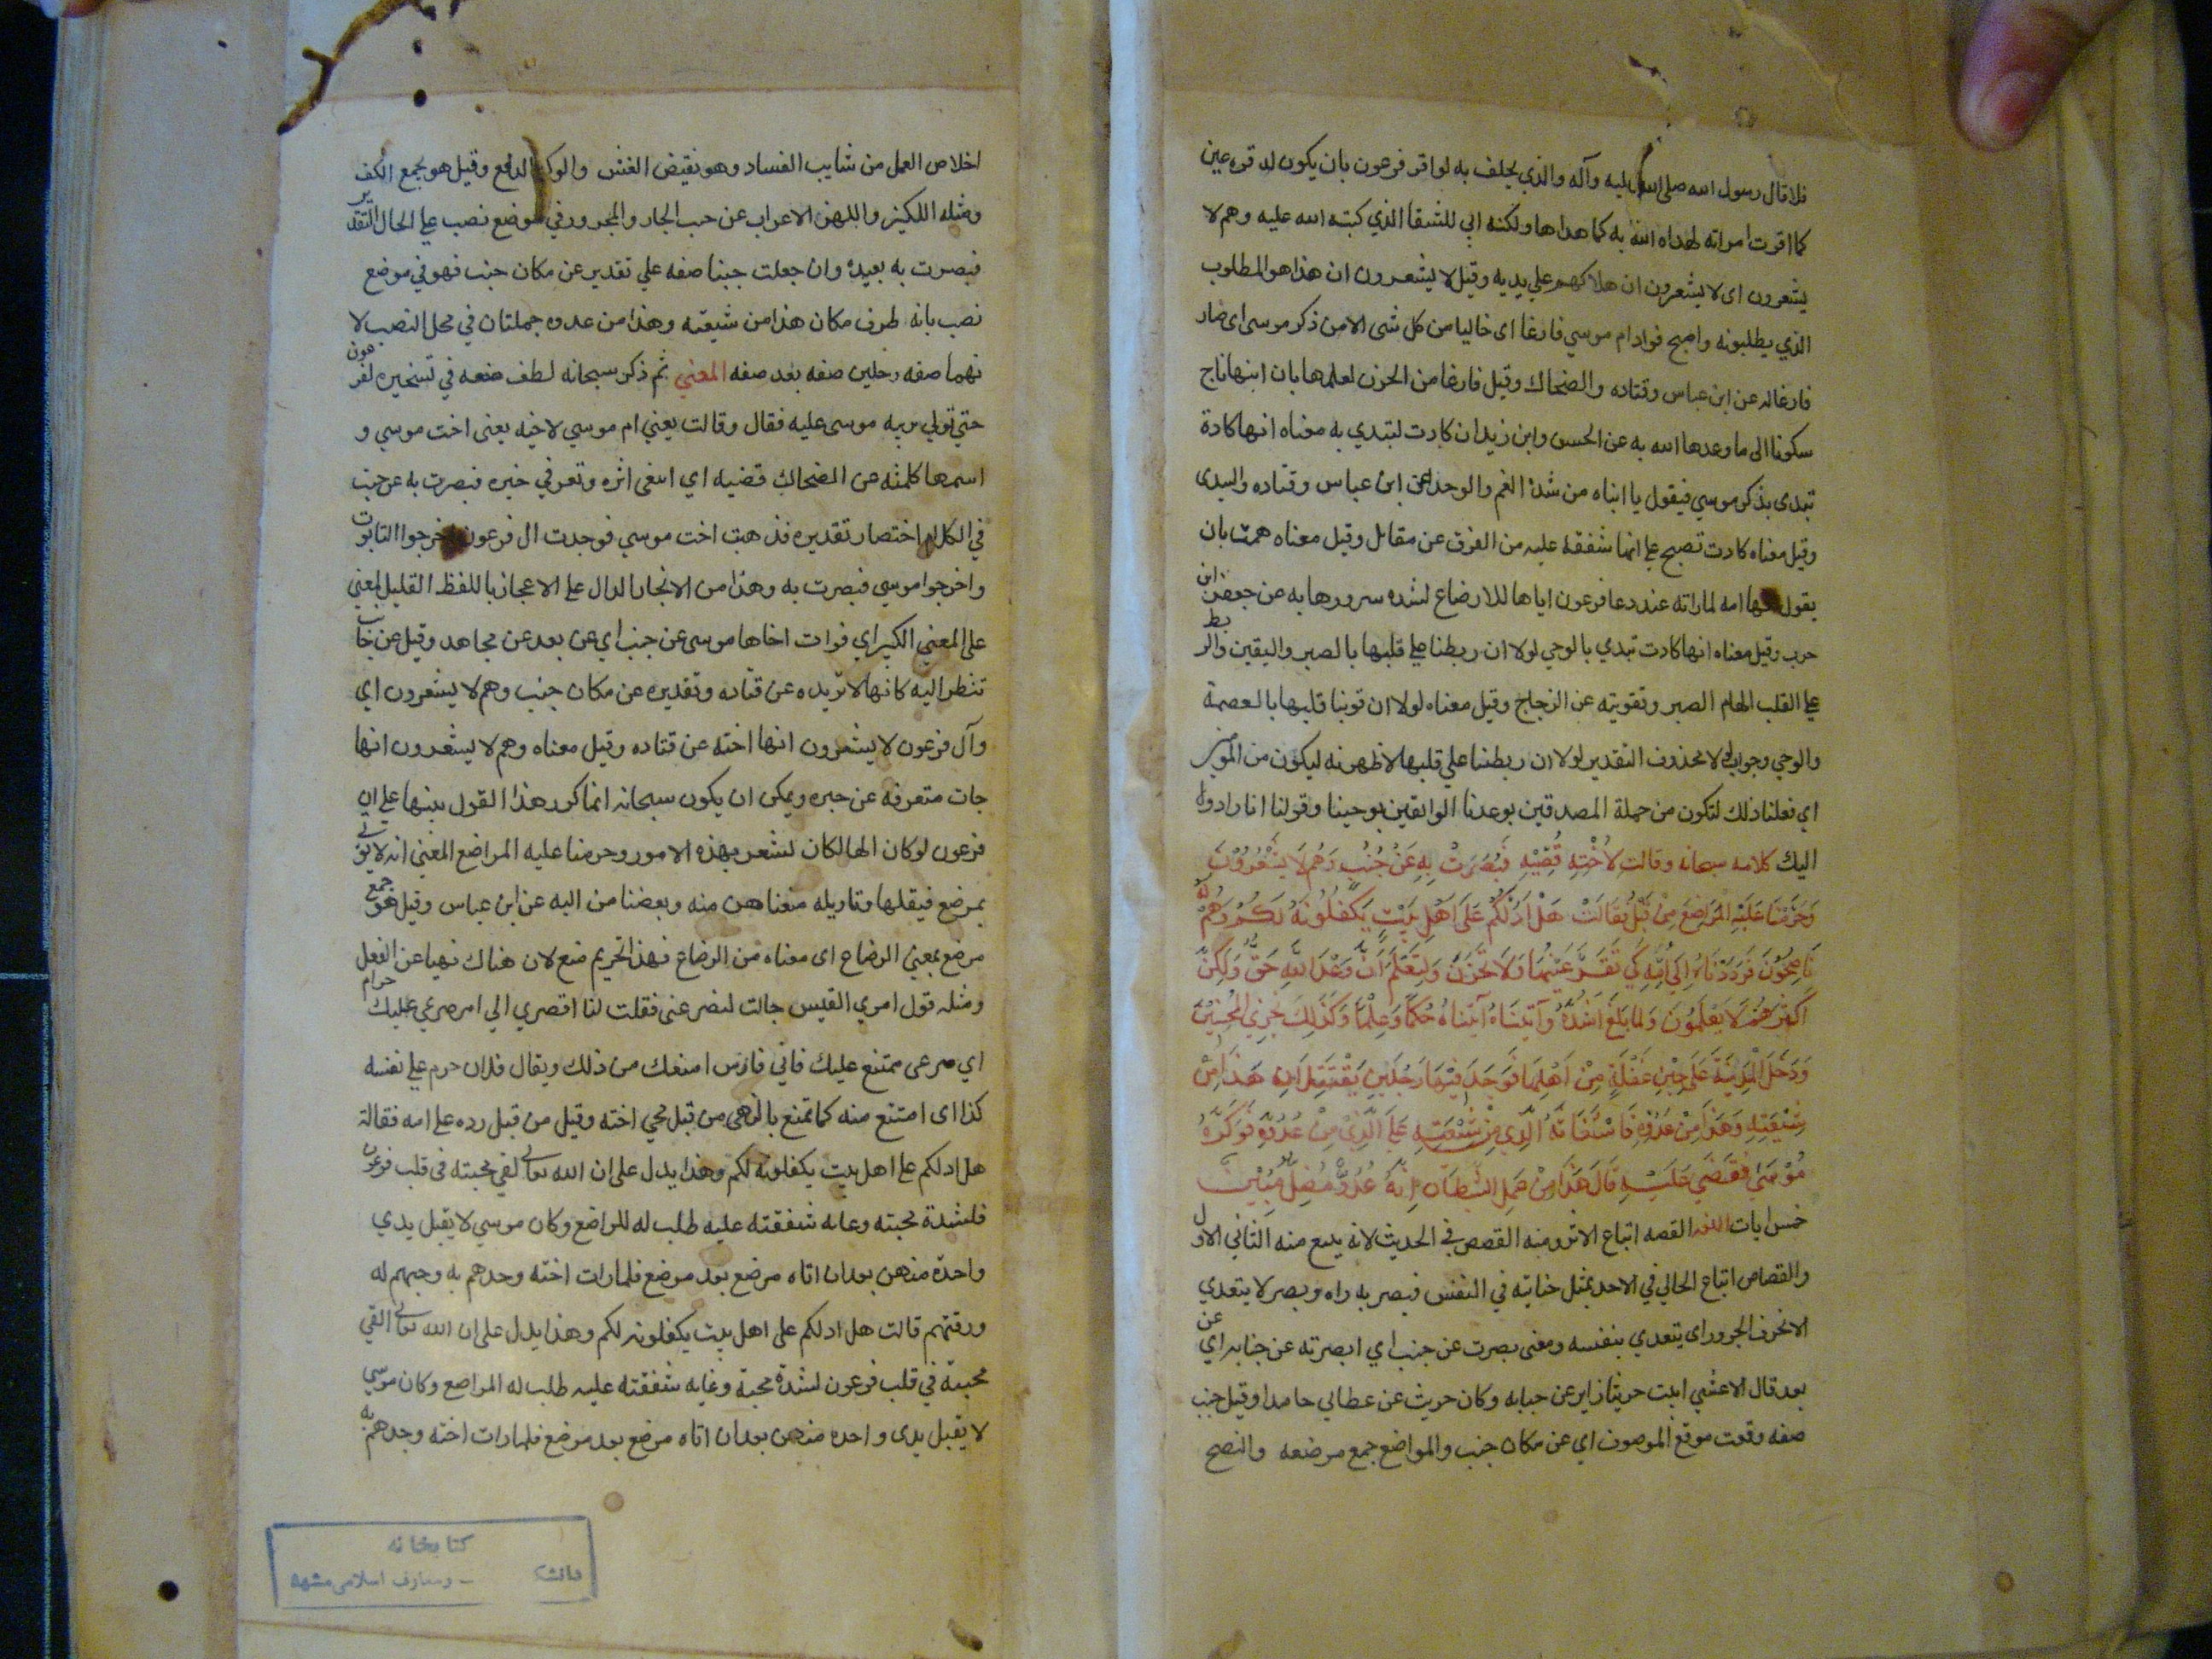 فلا قال رسول الله صلى الله عليه وآله والذي يحلف به لو اقر فرعون بان يكون له قره عين
كما اقرت امراته لهداه الله به كما هداها ولكنه ابي للشقا الذي كتبه الله عليه وهم لا
يشعرون اى لا يشعرون ان هلاكهم علي يديه وقيل لا يشعرون ان هذا هو المطلوب
الذي يطلبونه واصبح فواد ام موسي فارغا اى خاليا من كل شى الا من ذكر موسى اى صار
فارغا له عن ابن عباس وقتاده والضحاك وقيل فارغا من الحزن لعلمها بان ابنها ناج
سكونا الى ما وعدها الله به عن الحسن وابن زيد ان كادت لتبدي به معناه انها كادة
تبدى بذكر موسي فيقول يا ابناه من شدة الغم والوجد عن ابن عباس وقتاده والسدى
وقيل معناه كادت تصيح على انها شفقة عليه من الغرق عن مقاتل وقيل معناه همت بان
يقول انها امه لما راته عند دعا فرعون اياها للارضاع لشده سرورها به عن جعفر ابن
حرب وقيل معناه انها كادت تبدي بالوحي لولا ان ربطنا على قلبها بالصبر واليقين والربط
على القلب الهام الصبر وتقويته عن الزجاج وقيل معناه لولا ان قوينا قلبها بالعصمة
والوحي وجواب لولا محذوف التقدير لولا ان ربطنا علي قلبها لاظهرته ليكون من المومنين
اي فعلنا ذلك لتكون من جملة المصدقين بوعدنا الواثقين بوحينا وقولنا انا رادوه
اليك كلامه سبحانه وقالت لِاُخْتِهِ قُصِّيْهِ فَبَصُرَتْ بِهِ عَنْ جُنُبٍ وَهُمْ لَا يَشْعُرُوْنَ
وَحَرَّمْنَا عَلَيْهِ الْمَرَاضِعَ مِنْ قَبْلُ فَقَالَتْ هَلْ اَدُلُّكُمْ عَلَى اَهْلِ بَيْتٍ يَكْفُلُوْنَهُ لَكُمْ وَهُمْ لَهُ
نَاصِحُوْنَ فَرَدَدْنَاهُ اِلَى اُمِّهِ كَيْ تَقَرَّ عَيْنُهَا وَلَا تَحْزَنَ وَلِتَعْلَمَ اَنَّ وَعْدَ اللهِ حَقٌّ وَلكِنَّ
اَكْثَرَهُمْ لَا يَعْلَمُوْنَ وَلَمَّا بَلَغَ اَشُدَّهُ وَآتَيْنَاهُ آتَيْنَاهُ حُكْمًا وَعِلْمًا وَكَذلِكَ نَجْزِي الْمُحْسِنِيْنَ
وَدَخَلَ الْمَدِيْنَةَ عَلَى حِيْنِ غَفْلَةٍ مِنْ اَهْلِهَا فَوَجَدَ فِيْهَا رَجُلَيْنِ يَقْتَتِلَانِ هَذَا مِنْ
شِيْعَتِهِ وَهَذَا مِنْ عَدُوِّهِ فَاسْتَغَاثَهُ الَّذِي مِنْ شِيْعَتِهِ عَلَى الَّذِيْ مِنْ عَدُوِّهِ فَوَكَزَهُ
مُوْسَى فَقَضَى عَلَيْهِ قَالَ هَذَا مِنْ عَمَلِ الشَّيْطَانِ اِنَّهُ عَدُوٌّ مُضِلٌّ مُبِيْنٌ
خمس ايات اللغه القصه اتباع الاثر ومنه القصص في الحديث لانه يتبع منه الثاني الاول
والقصاص اتباع الجاني في الاخذ بمثل جنايته في النفس فبصر به راه وبصر لا يتعدي
الا بحرف الجر وراى يتعدي بنفسه ومعنى بصرت عن جنب اي ابصرته عن جنابه اي عن
بعد قال الاعشي اتيت حريثا زايرا عن جنابه وكان حريث عن عطائي جامدا وقيل جنب
صفه وقعت موقع الموصوف اي عن مكان جنب والمواضع جمع مرضعه والنصح
اخلاص العمل من شايب الفساد وهو نقيض الغش والوكز الدفع وقيل هو بجمع الكف
ومثله اللكز واللهز الاعراب عن جنب الجار والمجرور في موضع نصب على الحال التقدير
فبصرت به بعيدة وان جعلت جنبا صفه علي تقدير عن مكان جنب فهو في موضع
نصب بانه ظرف مكان هذا من شيعته وهذا من عدوه جملتان في محل النصب لا
نهما صفه رجلين صفه بعد صفه المعني ثم ذكر سبحانه لطف صنعه في تسخيره لفرعون
حتي تولي تربيه موسى عليه فقال وقالت يعني ام موسي لاخته يعنى اخت موسي و
اسمها كلثمه عن الضحاك قصيه اي اتبعى اثره وتعرفي خبره فبصرت به عن جنب
في الكلام اختصار تقديره فذهبت اخت موسي فوجدت ال فرعون اخرجوا التابوت
واخرجوا موسي فبصرت به وهذا من الايجاز الدال على الاعجاز باللفظ القليل المعني
على المعني الكثير اي فرات اخاها موسى عن جنب اي عن بعد عن مجاهد وقيل عن جانب
تنظر اليه كانها لا تريده عن قتاده وتقديره عن مكان جنب وهم لا يشعرون اي
وآل فرعون لا يشعرون انها اخته عن قتاده وقيل معناه وهم لا يشعرون انها
جات متعرفه عن خبره ويمكن ان يكون سبحانه انما كرر هذا القول تنبيها على ان
فرعون لو كان الها لكان لشعر بهذه الامور وحرمنا عليه المراضع المعني انه لا يوتي
بمرضع فيقبلها وتاويله منعناهن منه وبغضنا من اليه عن ابن عباس وقيل هو جمع
مرضع بمعني الرضاع اى معناه من الرضاع فهذا تحريم منع لان هناك نهيا عن الفعل
ومثله قول امري القيس جالت لتصرعنى فقلت لها اقصري اني امر صرعي عليك حرام
اي صرعى ممتنع عليك فاني فارس امنعك من ذلك ويقال فلان حرم على نفسه
كذا اى امتنع منه كما تمنع بالنهى من قبل مجي اخته وقيل من قبل رده على امه فقالة
هل ادلكم على اهل بيت يكفلونه لكم وهذا يدل على ان الله تعالى القي محبته في قلب فرعون
فلشدة محبته وغايه شفقته عليه طلب له المراضع وكان موسي لا يقبل يدي
واحدة منهن بعد ان اتاه مرضع بعد مرضع فلما رات اخته وجدهم به وحبهم له
ورقتهم قالت هل ادلكم على اهل بيت يكفلونه لكم وهذا يدل على ان الله تعالى القي
محبته في قلب فرعون لشدة محبة وغايه شفقته عليه طلب له المراضع وكان موسي
لا يقبل يدى واحده منهن بعد ان اتاه مرضع بعد مرضع فلما رات اخته وجدهم به
كتابخانه
ـ ومعارف اسلامى مشهد